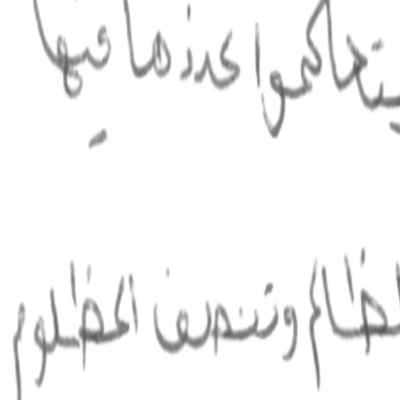 يتحاكموا عندها فيها
الظالم وتنصف المظلوم